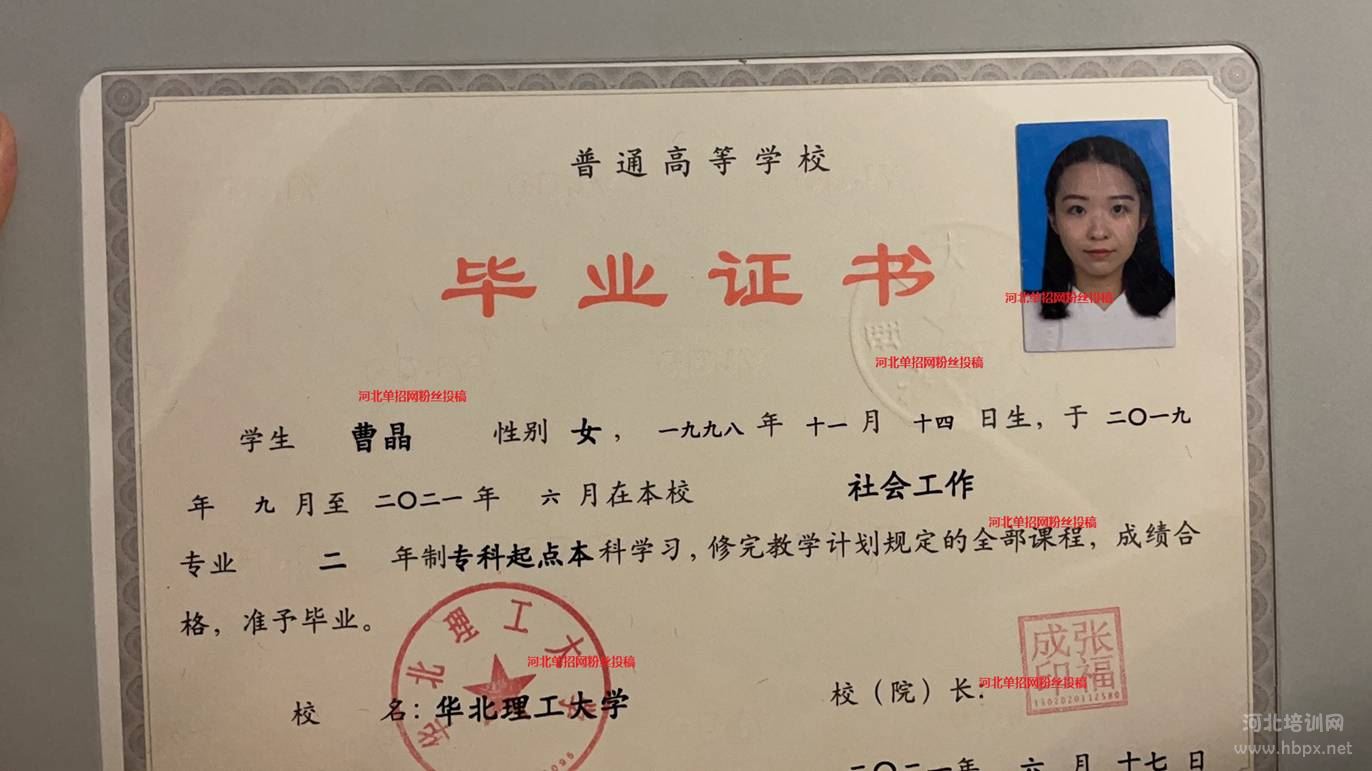 普通高等学校
毕业证书
河北单招网粉丝投稿
河北单招网粉丝投稿
河北单招网粉丝投稿
学生 曹晶 性别 女， 一九九八 年 十一 月 十四 日生，于 二〇一九
年 九 月至 二〇二一 年 六 月在本校 社会工作
河北单招网粉丝投稿
专业 二 年制专科起点本科学习，修完教学计划规定的全部课程，成绩合
格，准予毕业。
华北理工大学
河北单招网粉丝投稿
校 名：华北理工大学
校（院）长：
张福成印
河北单招网粉丝投稿
二〇二一年 六 月 十七 日
河北培训网
www.hbpx.net